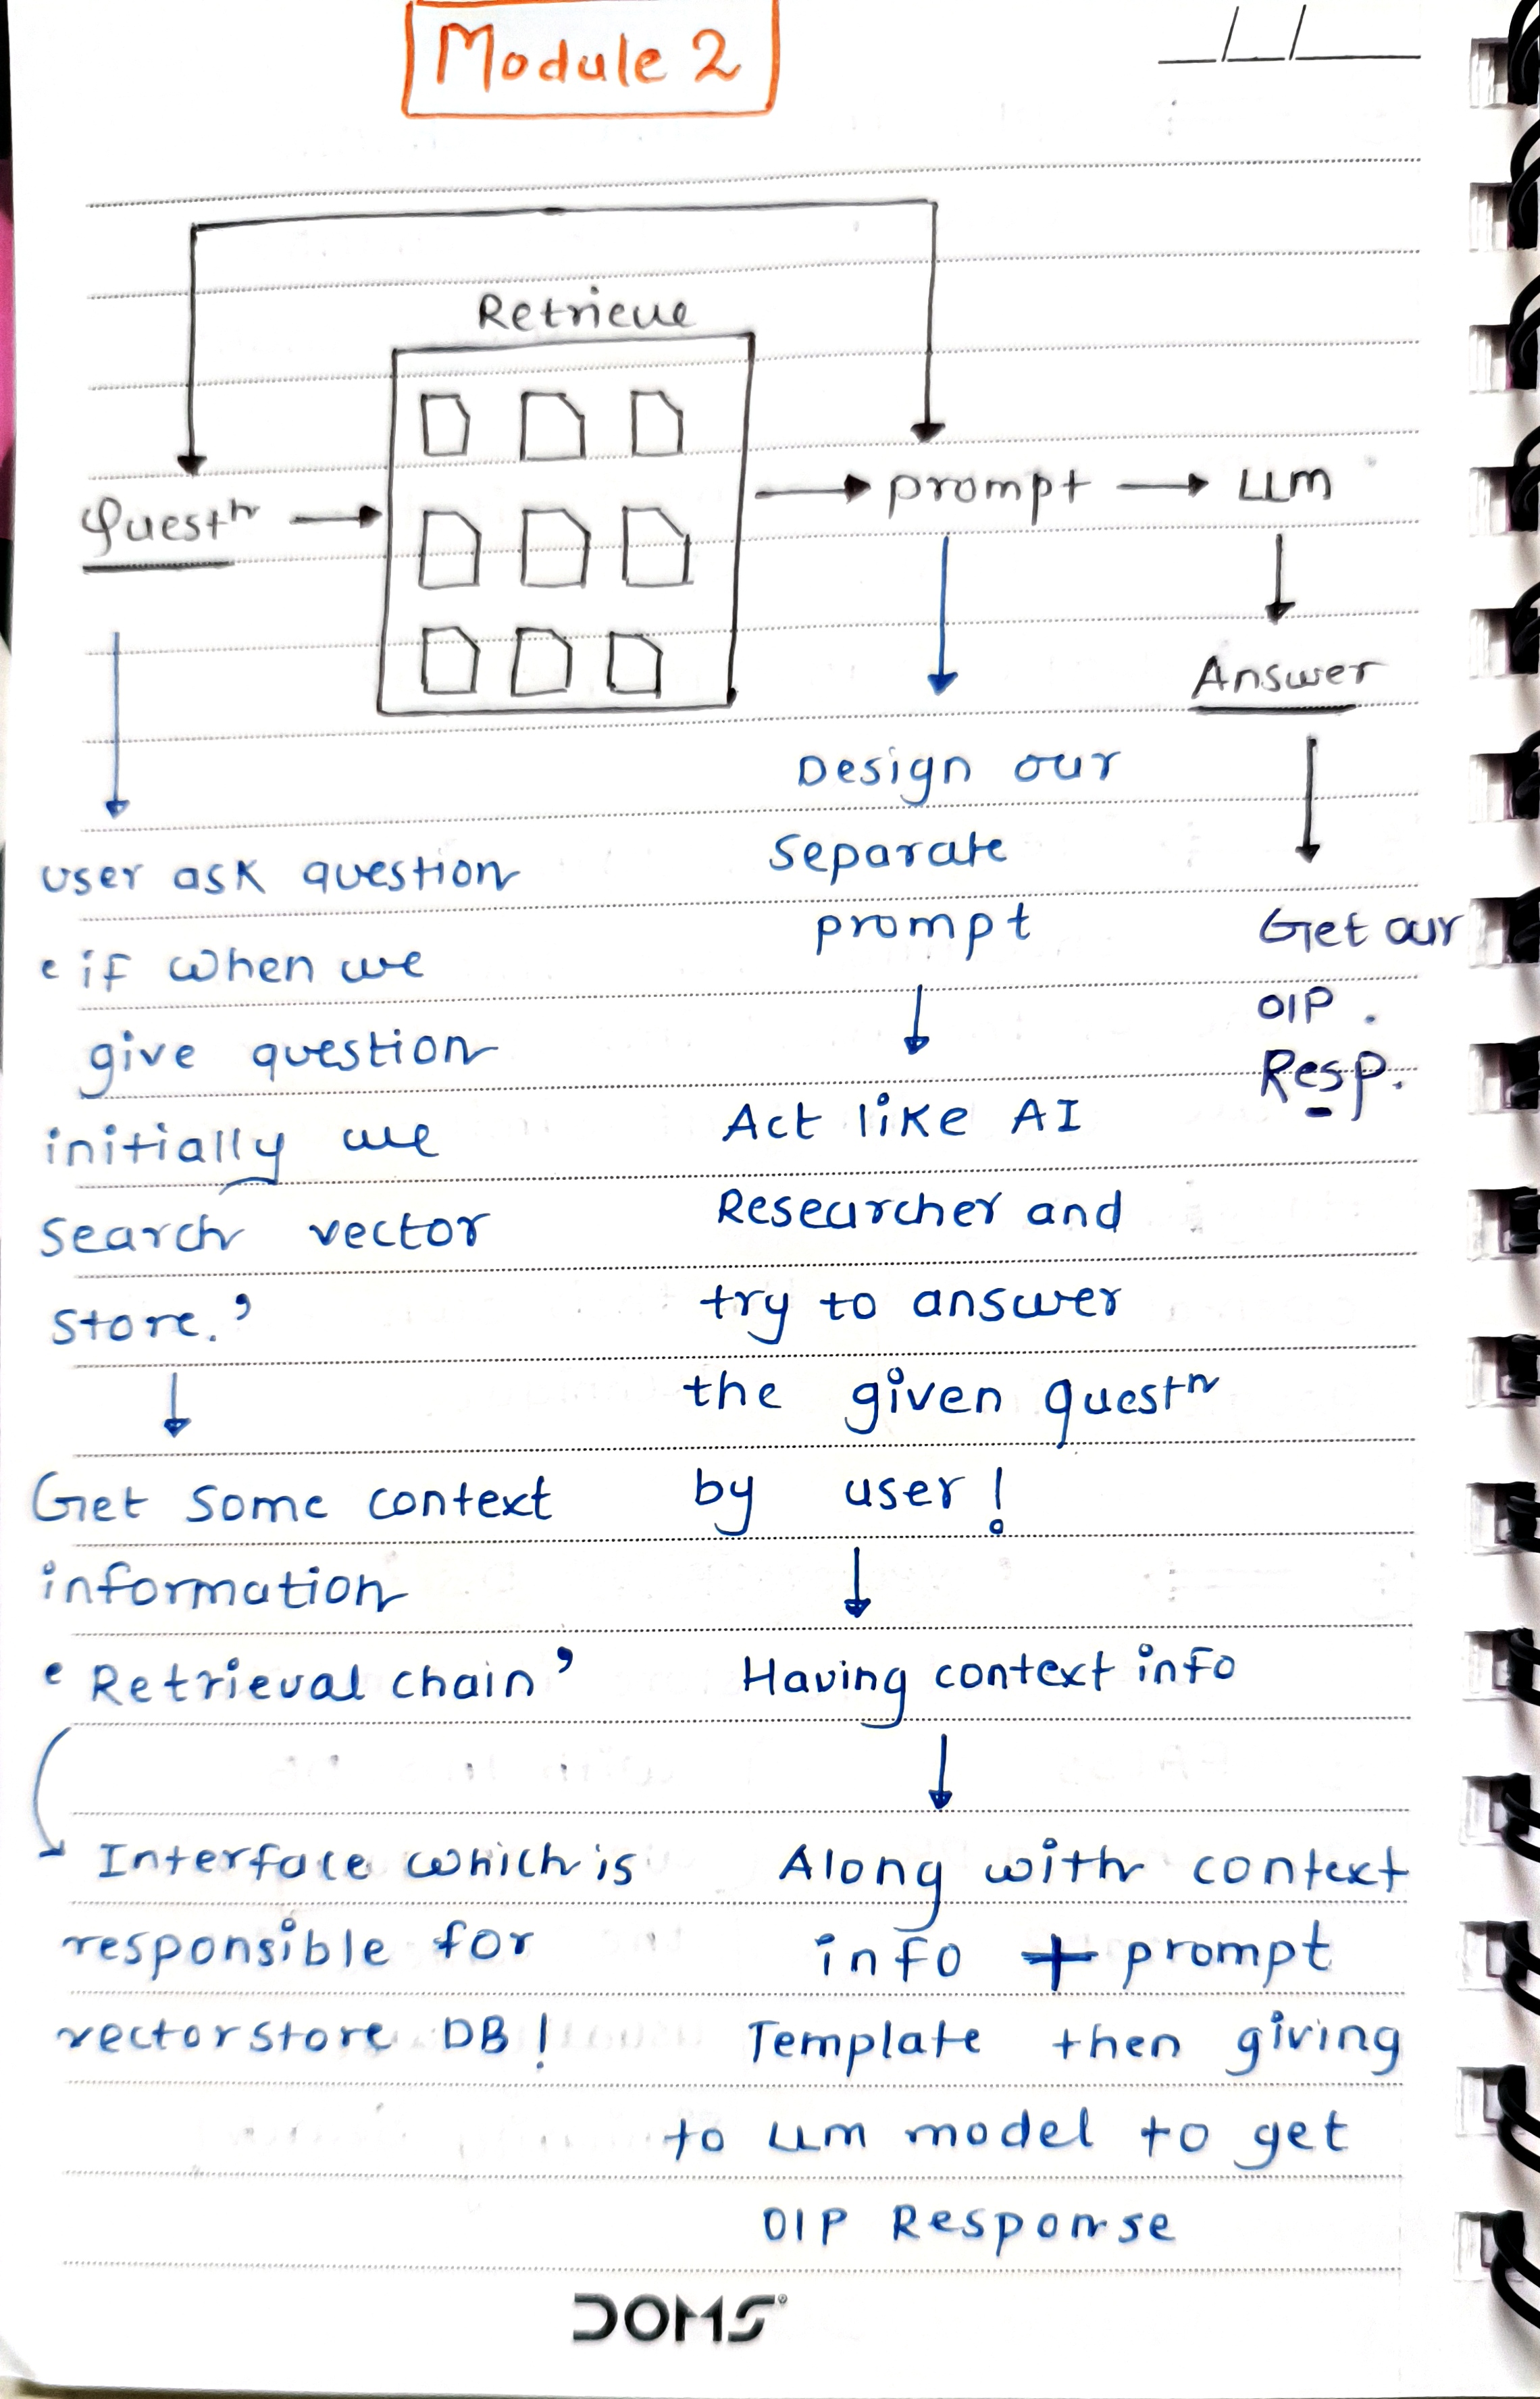 Module 2
Retrieve
Questn
prompt
LLM
Answer
user ask question
'if when we
give question
initially we
search vector
store.'
Get some context
information
'Retrieval chain'
Interface which is
responsible for
vectorstore DB!
Design our
separate
prompt
Act like AI
Researcher and
try to answer
the given questn
by user!
Having context info
Along with context
info + prompt
Template then giving
to LLM model to get
O/P Response
Get our
O/P.
Resp.
DOMS